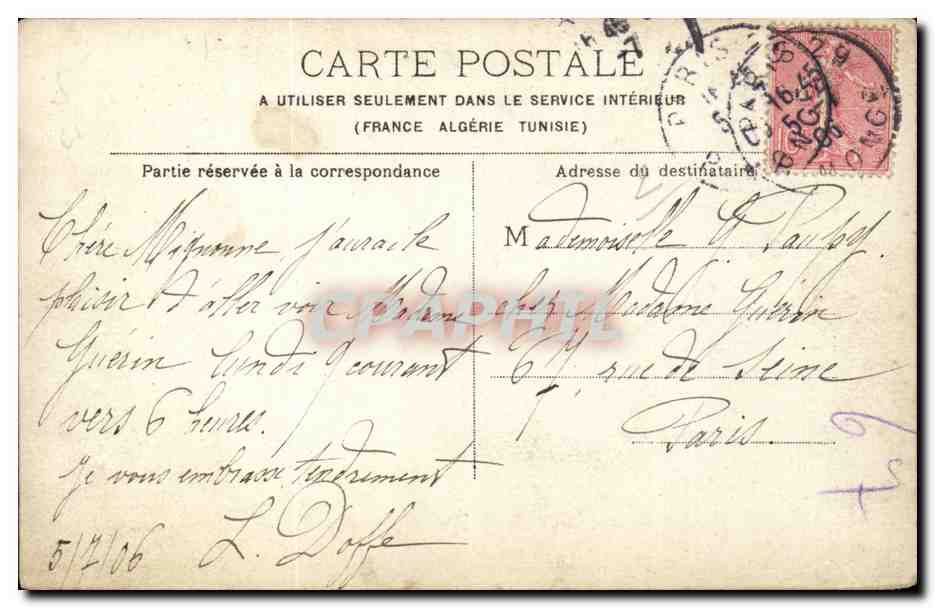 CARTE POSTALE
A UTILISER SEULEMENT DANS LE SERVICE INTÉRIEUR
(FRANCE ALGÉRIE TUNISIE)
Partie réservée à la correspondance
Chère Mignonne j'aurai le
plaisir d'aller voir Madame
Guérin lundi 9 courant
vers 6 heures.
Je vous embrasse tendrement
L. Doffe
5/7/06
Adresse du destinataire
Mademoiselle
chez Madame Guérin
rue de Seine
Paris.
CPAPHIL